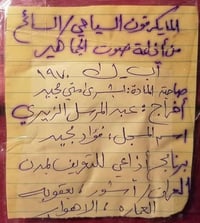 المايكرفون السياحي/السائح
من أذاعة صوت الجماهير
آب ١٩٧٠
صاحبة المادة: بشرى امين مجيد
أخراج: عبد المرسل الزيدي
اسم المسجل: فؤاد مجيد
برنامج أذاعي للتعريف لمدن
العراق/ آشور، بعقوبة
العماره، الاهوار